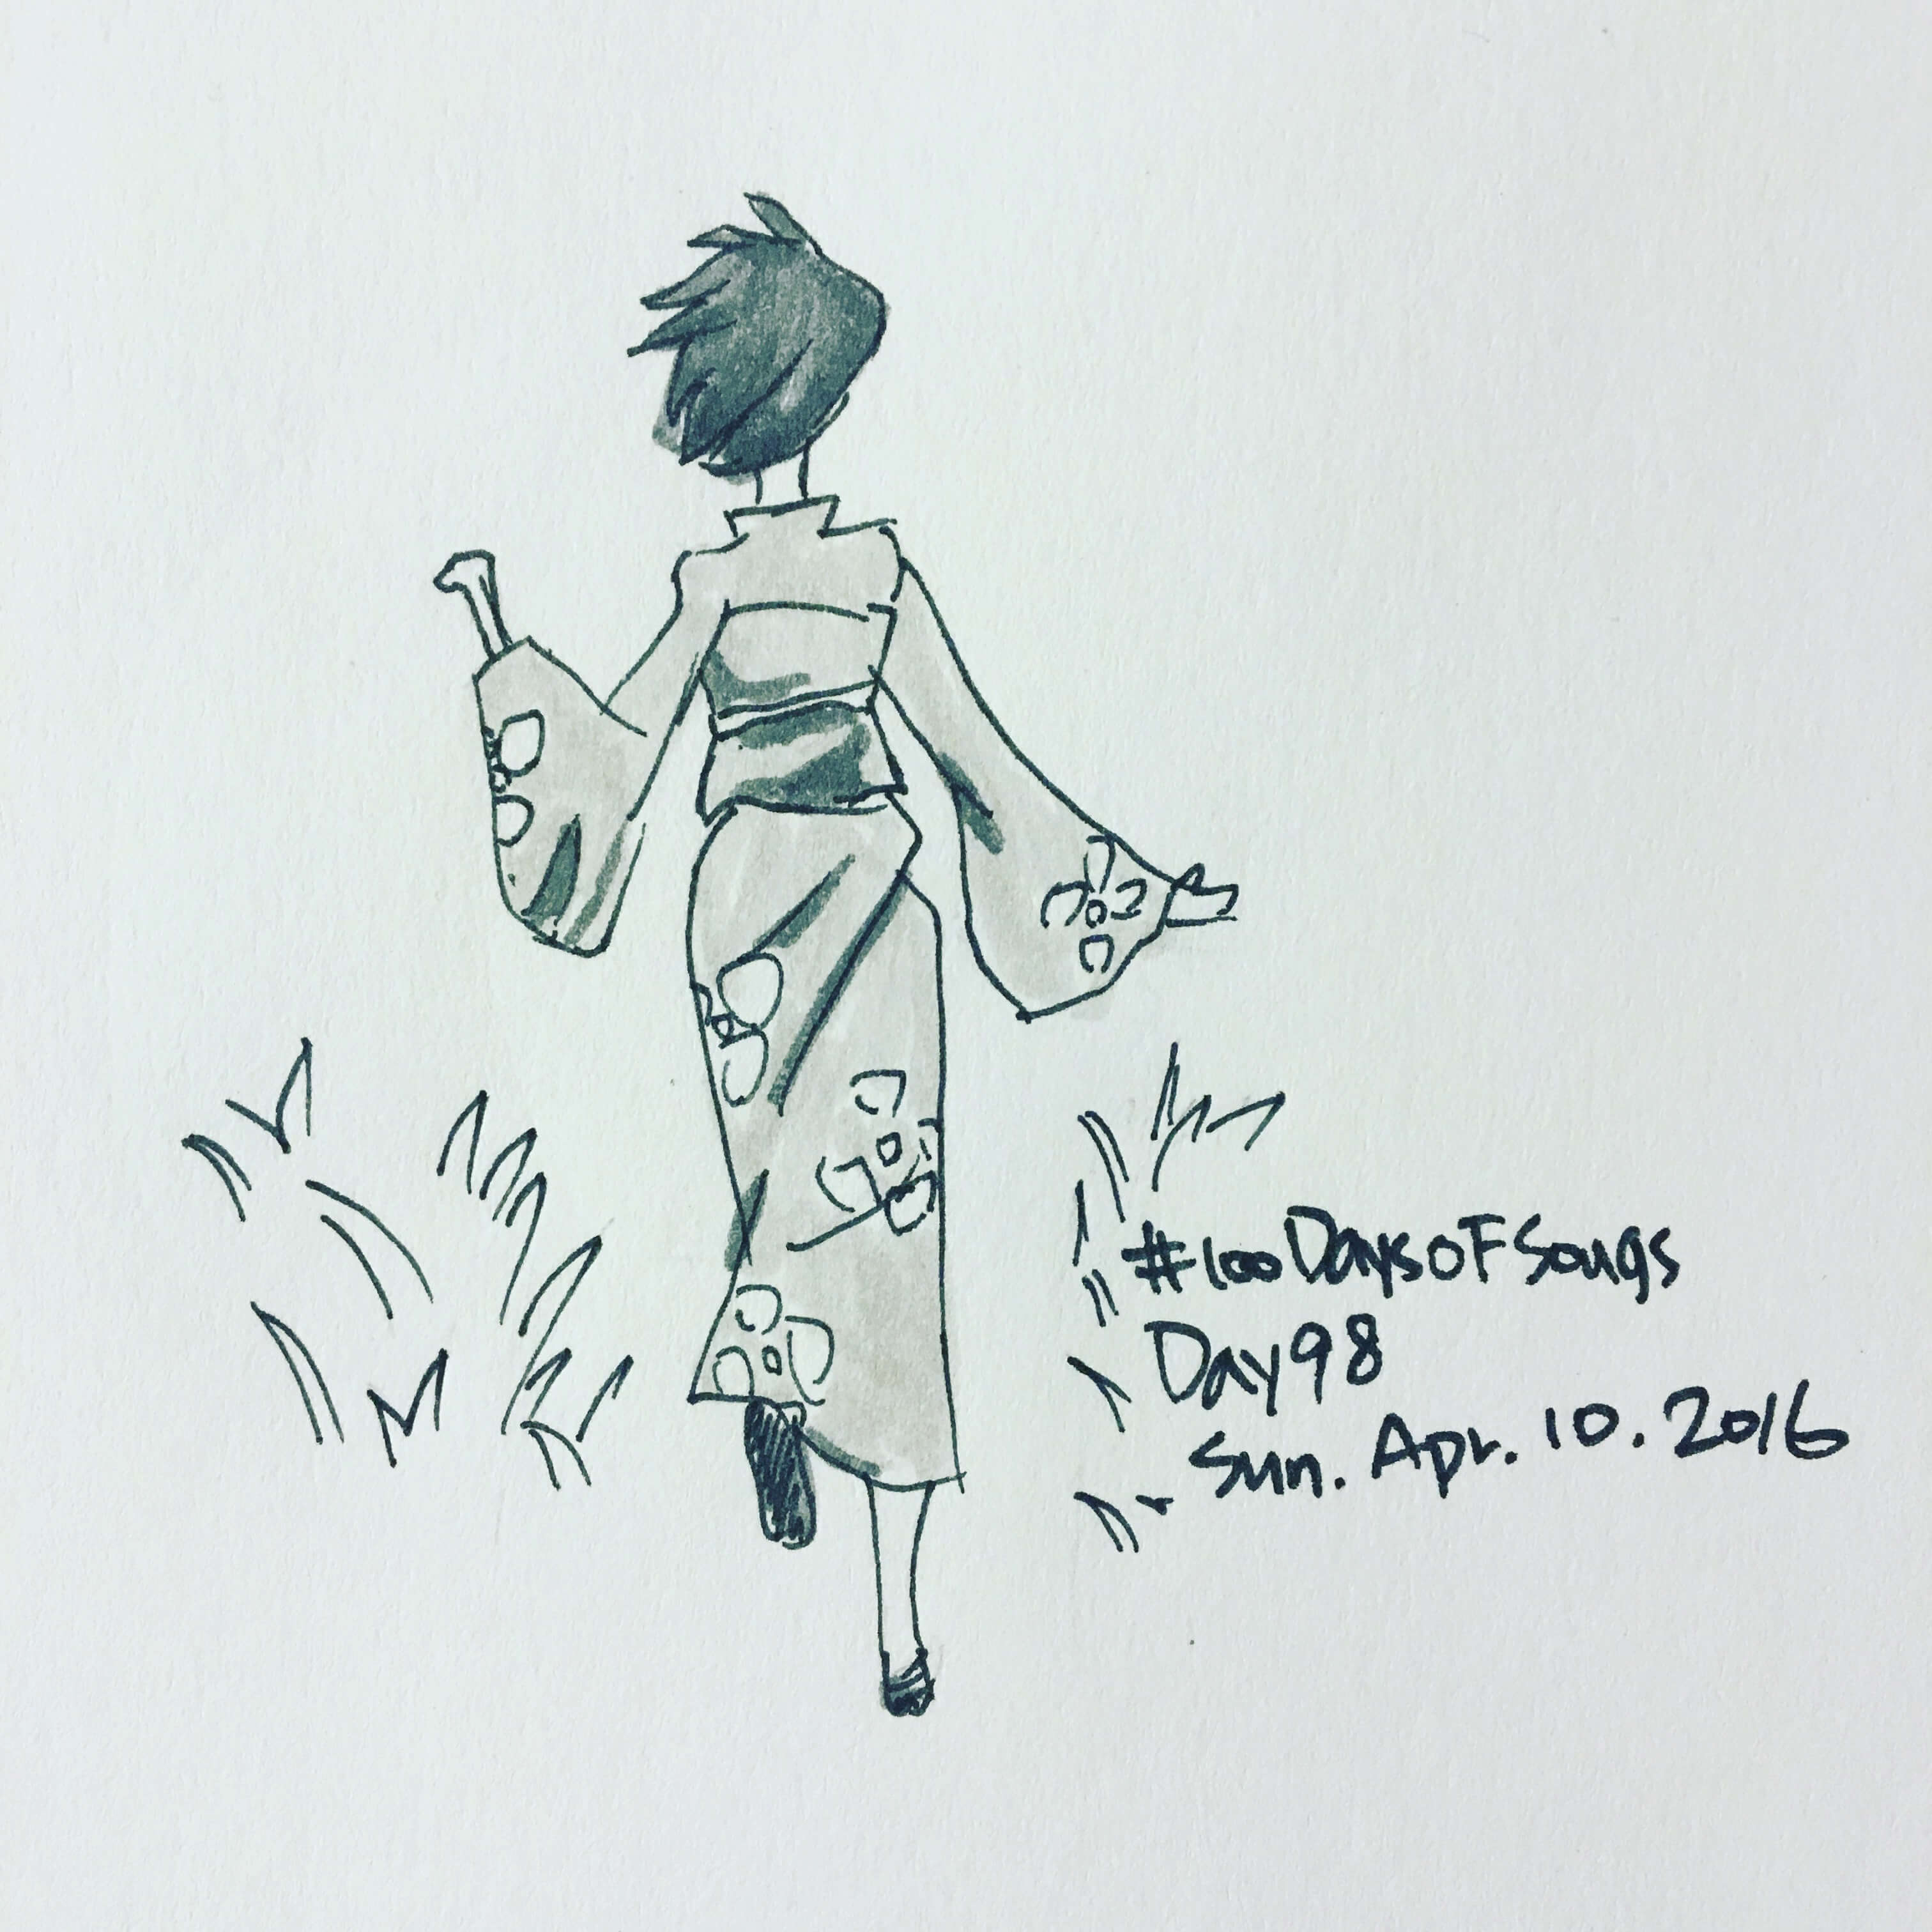 #100DaysOFSongs
Day98
Sun. Apr. 10. 2016